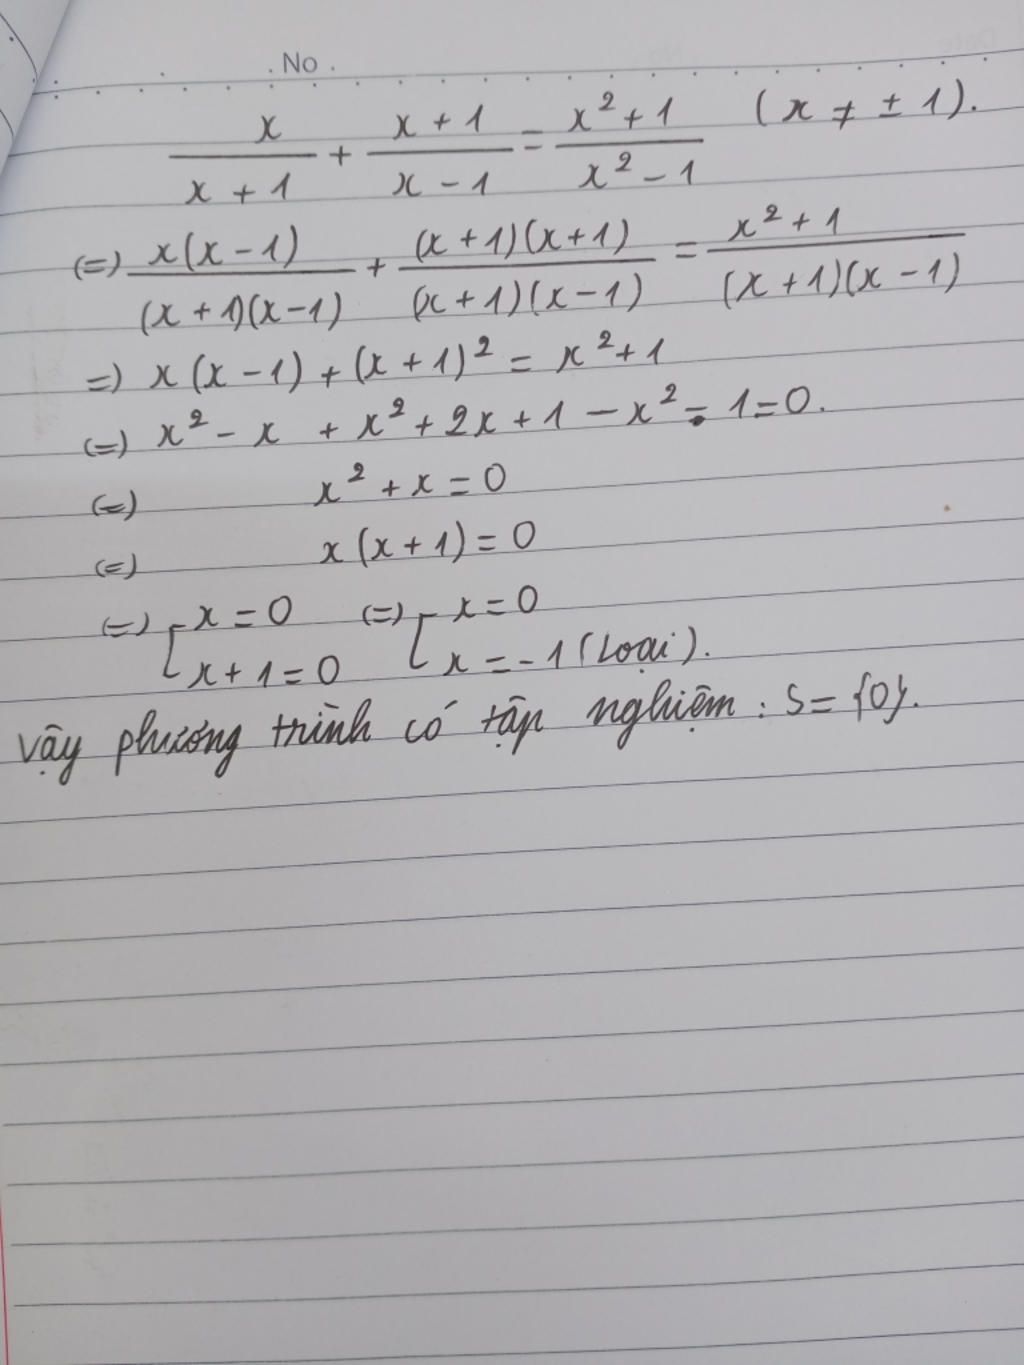 . No .
x/(x + 1) + (x + 1)/(x - 1) = (x² + 1)/(x² - 1) (x ≠ ± 1).
(=) x(x - 1)/((x + 1)(x - 1)) + (x + 1)(x + 1)/((x + 1)(x - 1)) = (x² + 1)/((x + 1)(x - 1))
=) x(x - 1) + (x + 1)² = x² + 1
(=) x² - x + x² + 2x + 1 - x² - 1 = 0.
(=) x² + x = 0
(=) x(x + 1) = 0
(=) [ x = 0 (=) [ x = 0
x + 1 = 0 x = - 1 (Loại).
vậy phương trình có tập nghiệm : S = {0}.